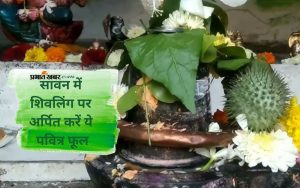 प्रभात खबर
सावन में
शिवलिंग पर
अर्पित करें ये
पवित्र फूल